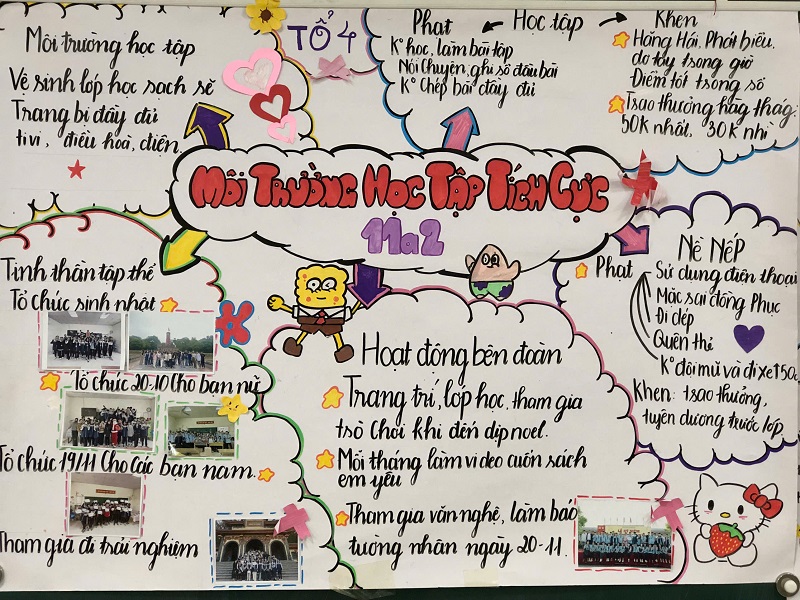 Môi trường học tập
Vệ sinh lớp học sạch sẽ
Trang bị đầy đủ
tivi, điều hoà, điện
TỔ 4
Phạt
Học tập
Khen
K° học, làm bài tập
Nói chuyện, ghi sổ đầu bài
K° chép bài đầy đủ
Hăng Hái, Phát biểu,
dơ tay trong giờ
Điểm tốt trong sổ
Trao thưởng hàng tháng:
50K nhất, 30K nhì
MÔI TRƯỜNG HỌC TẬP TÍCH CỰC
11a2
Tinh thần tập thể
Tổ chức sinh nhật
Tổ chức 20-10 Cho bạn nữ
Tổ chức 19/11 Cho các bạn nam.
Tham gia đi trải nghiệm
Hoạt động bên đoàn
Trang trí, lớp học, tham gia
trò chơi khi đến dịp noel.
Mỗi tháng làm video cuốn sách
em yêu
Tham gia văn nghệ, làm báo
tường nhân ngày 20-11.
Nề Nếp
Phạt
Sử dụng điện thoại
Mặc sai đồng Phục
Đi dép
Quên thẻ
K° đội mũ và đi xe
Khen: trao thưởng,
tuyên dương trước lớp